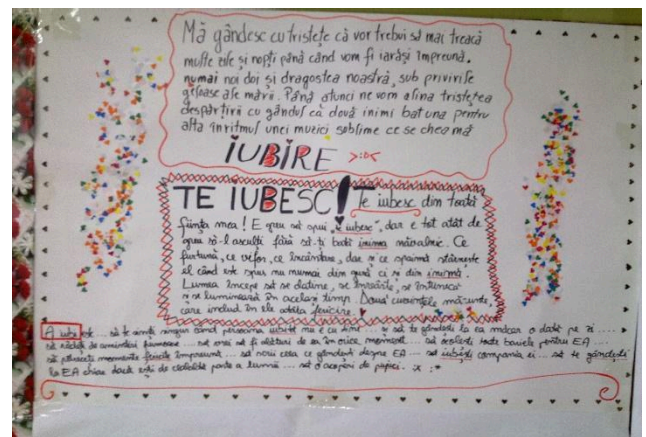 Mă gândesc cu tristețe că vor trebui să mai treacă
multe zile și nopți până când vom fi iarăși împreună,
numai noi doi și dragostea noastră, sub privirile
geloase ale mării. Până atunci ne vom alina tristețea
despărțirii cu gândul că două inimi bat una pentru
alta în ritmul unei muzici sublime ce se cheamă
IUBIRE >:D<
TE IUBESC! Te iubesc din toată
ființa mea! E greu să spui „te iubesc”, dar e tot atât de
greu să-l asculți fără să-ți bată inima năvalnic. Ce
furtună, ce vifor, ce încântare, dar și ce spaimă stârnește
el când este spus nu numai din gură ci și din inimă.
Lumea începe să se clatine, se însorește, se întunecă
și se luminează în același timp. Două cuvințele măsunte,
care includ în ele atâta fericire.
A iubi este... să te simți singur când persoana iubită nu e cu tine... și să te gândești la ea măcar o dată pe zi...
să râdeți de amintiri frumoase... să vrei să fii alături de ea în orice moment... să asculți toate baviele pentru EA...
să petreceți momente fericite împreună... să scrii ceea ce gândești despre EA... să iubești compania ei... să te gândești
la EA chiar dacă ești de cealaltă parte a lumii... să o acoperi de pupici. :x :*